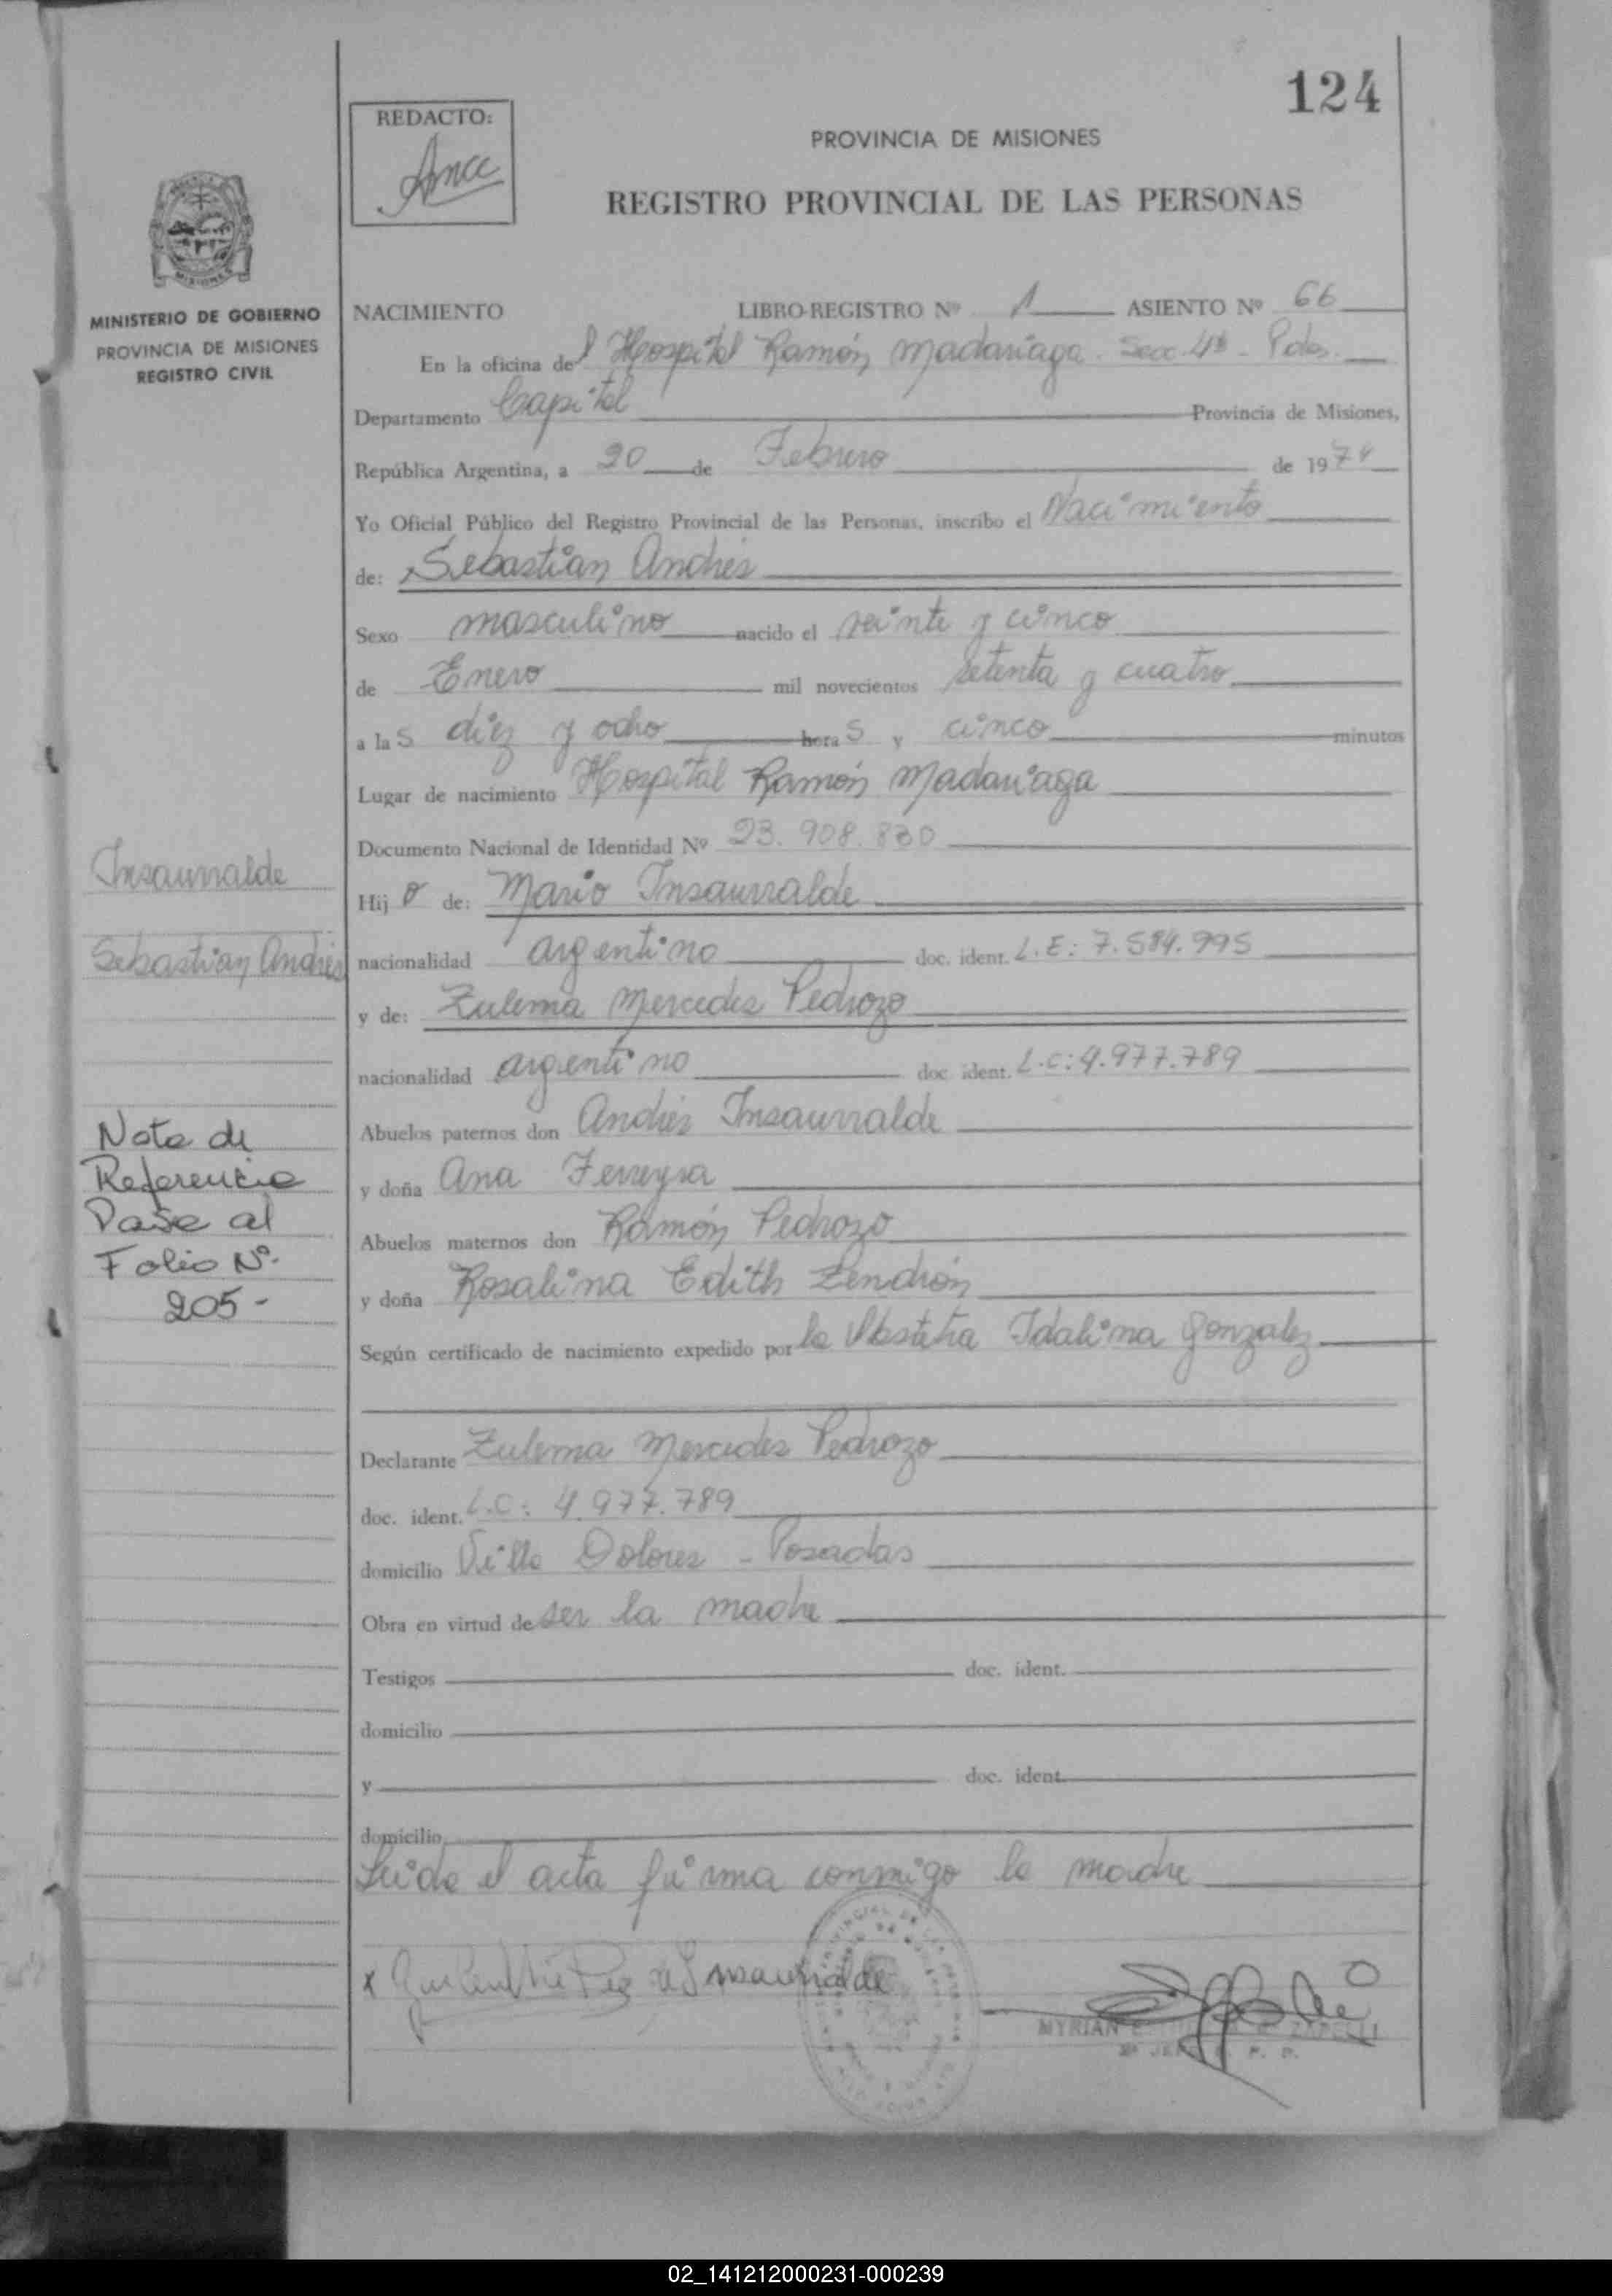 124
REDACTO:
PROVINCIA DE MISIONES
REGISTRO PROVINCIAL DE LAS PERSONAS
MINISTERIO DE GOBIERNO
PROVINCIA DE MISIONES
REGISTRO CIVIL
NACIMIENTO LIBRO-REGISTRO Nº 1 ASIENTO Nº 66
En la oficina del Hospital Ramón Madariaga. Secc. 4ª - Pdas.
Departamento Capital Provincia de Misiones,
República Argentina, a 20 de Febrero de 1974
Yo Oficial Público del Registro Provincial de las Personas, inscribo el Nacimiento
de: Sebastián Andrés
Sexo masculino nacido el veinte y cinco
de Enero mil novecientos setenta y cuatro
a las diez y ocho horas y cinco minutos
Lugar de nacimiento Hospital Ramón Madariaga
Documento Nacional de Identidad Nº 23.908.830
Hijo de: Mario Insaurralde
nacionalidad argentino doc. ident. L.E: 7.584.995
y de: Zulema Mercedes Pedrozo
nacionalidad argentino doc. ident. L.C: 4.977.789
Abuelos paternos don Andrés Insaurralde
y doña Ana Ferreyra
Abuelos maternos don Ramón Pedrozo
y doña Rosalina Edith Zendrón
Según certificado de nacimiento expedido por la Obstetra Idalina Gonzalez
Declarante Zulema Mercedes Pedrozo
doc. ident. L.C: 4.977.789
domicilio Villa Dolores - Posadas
Obra en virtud de ser la madre
Testigos doc. ident.
domicilio
y doc. ident.
domicilio
Leída el acta firma conmigo la madre
Insaurralde
Sebastián Andrés
Nota de
Referencia
Pase al
Folio Nº.
205-
de Insaurralde
MYRIAN
02_141212000231-000239